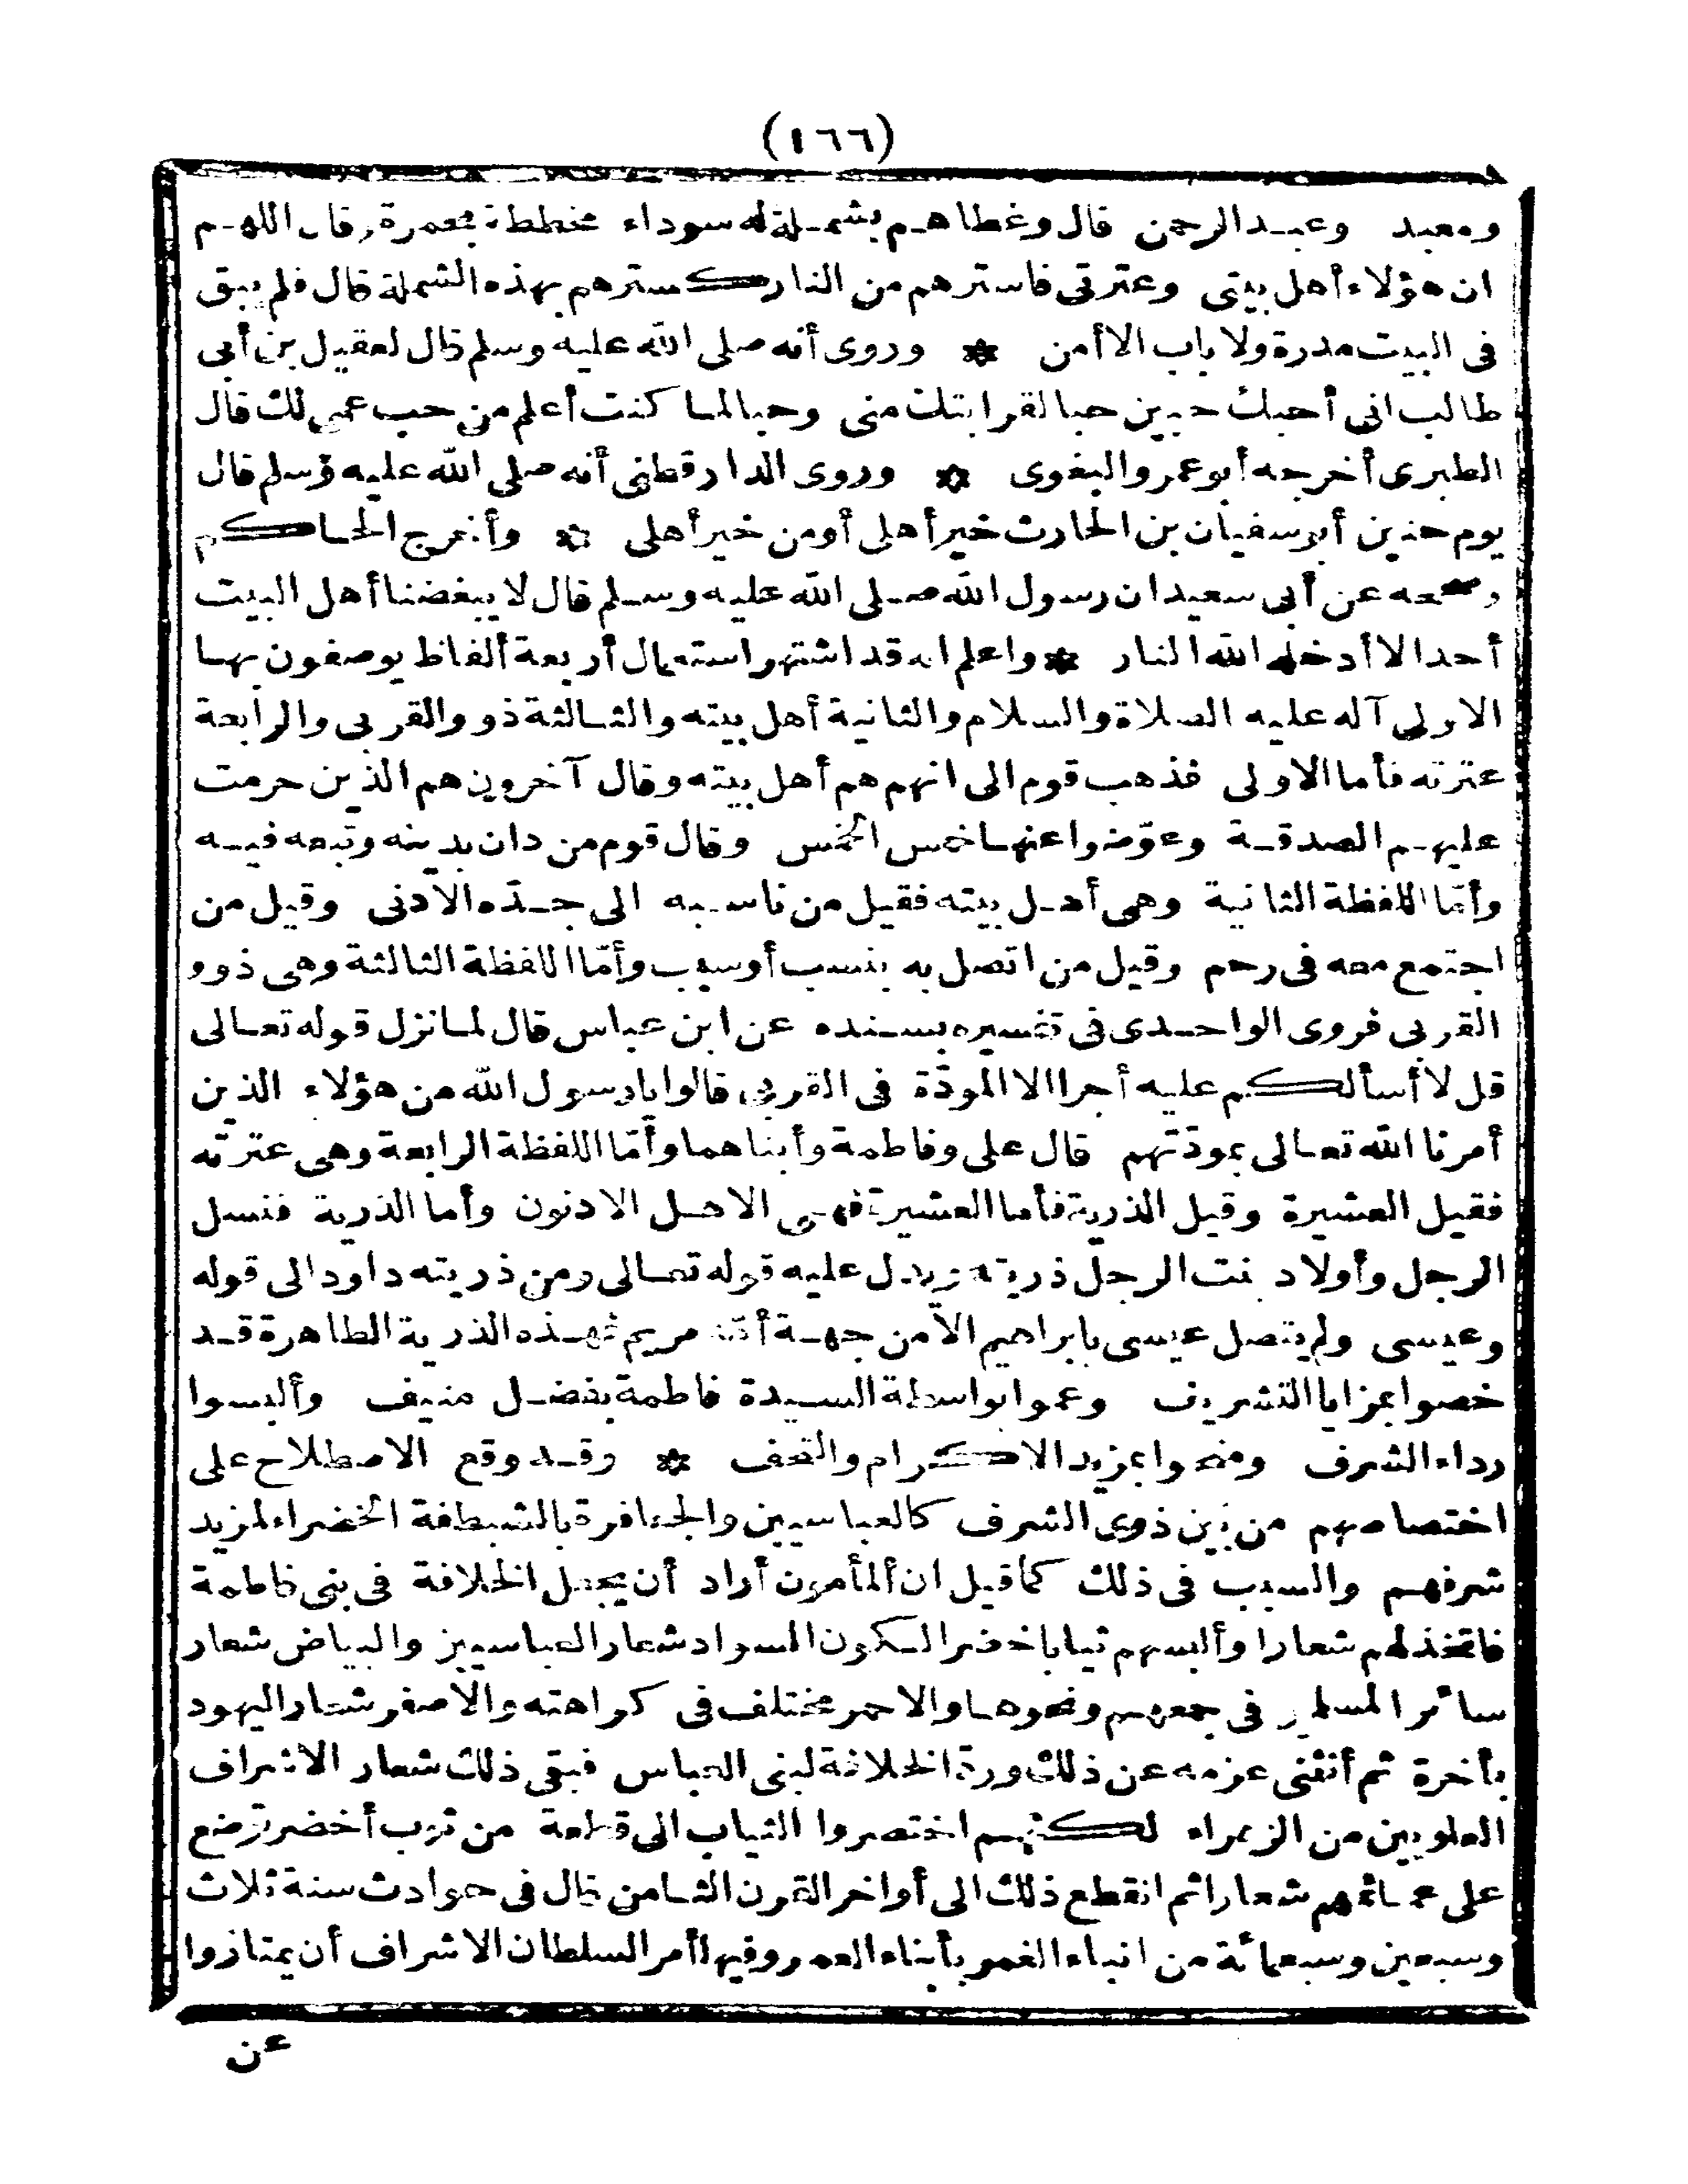 (١٦٦)
ومعبد وعبد الرحمن قال وغطاهم بشملة له سوداء مخططة بحمرة وقال اللهم
ان هؤلاء أهل بيتى وعترتى فاسترهم من النار كسترهم بهذه الشملة قال فلم يبق
فى البيت مدرة ولا باب الا أمن * وروى أنه صلى الله عليه وسلم قال لعقيل بن أبى
طالب انى أحبك حبين حبا لقرابتك منى وحبا لما كنت أعلم من حب عمى لك قال
الطبرى أخرجه أبو عمر والبغوى * وروى الدارقطنى أنه صلى الله عليه وسلم قال
يوم حنين أبو سفيان بن الحارث خير أهلى أو من خير أهلى * وأخرج الحاكم
وصححه عن أبى سعيد ان رسول الله صلى الله عليه وسلم قال لا يبغضنا أهل البيت
أحد الا أدخله الله النار * واعلم انه قد اشتهر استعمال أربعة ألفاظ يوصفون بها
الاولى آله عليه الصلاة والسلام والثانية أهل بيته والثالثة ذوو القربى والرابعة
عترته فأما الاولى فذهب قوم الى انهم هم أهل بيته وقال آخرون هم الذين حرمت
عليهم الصدقة وعوّضوا عنها خمس الخمس وقال قوم من دان بدينه وتبعه فيه
وأمّا اللفظة الثانية وهى أهل بيته فقيل من ناسبه الى جدّه الأدنى وقيل من
اجتمع معه فى رحم وقيل من اتصل به بنسب أو سبب وأمّا اللفظة الثالثة وهى ذوو
القربى فروى الواحدى فى تفسيره بسنده عن ابن عباس قال لما نزل قوله تعالى
قل لا أسألكم عليه أجرا الا المودّة فى القربى قالوا يا رسول الله من هؤلاء الذين
أمرنا الله تعالى بمودّتهم قال على وفاطمة وأبناهما وأمّا اللفظة الرابعة وهى عترته
فقيل العشيرة وقيل الذرية فأما العشيرة فهى الاهل الادنون وأما الذرية فنسل
الرجل وأولاد بنت الرجل ذريته ويدل عليه قوله تعالى ومن ذريته داود الى قوله
وعيسى ولم يتصل عيسى بابراهيم الا من جهة أمّه مريم فهذه الذرية الطاهرة قد
خصوا بمزايا التشريف وعموا بواسطة السيدة فاطمة بفضل منيف وألبسوا
رداء الشرف ومنحوا بمزيد الاكرام والتحف * وقد وقع الاصطلاح على
اختصاصهم من بين ذوى الشرف كالعباسيين والجعافرة بالشطفة الخضراء لمزيد
شرفهم والسبب فى ذلك كما قيل ان المأمون أراد أن يجعل الخلافة فى بنى فاطمة
فاتخذ لهم شعارا وألبسهم ثيابا خضرا لكون السواد شعار العباسيين والبياض شعار
سائر المسلمين فى جمعهم ونحوها والاحمر مختلف فى كراهته والاصفر شعار اليهود
بأخرة ثم أنثنى عزمه عن ذلك وردّ الخلافة لبنى العباس فبقى ذلك شعار الاشراف
العلويين من الزهراء لكنهم اختصروا الثياب الى قطعة من ثوب أخضر توضع
على عمائمهم شعارا ثم انقطع ذلك الى أواخر القرن الثامن قال فى حوادث سنة ثلاث
وسبعين وسبعمائة من انباء الغمر بأبناء العمر وفيها أمر السلطان الاشراف أن يمتازوا
عن